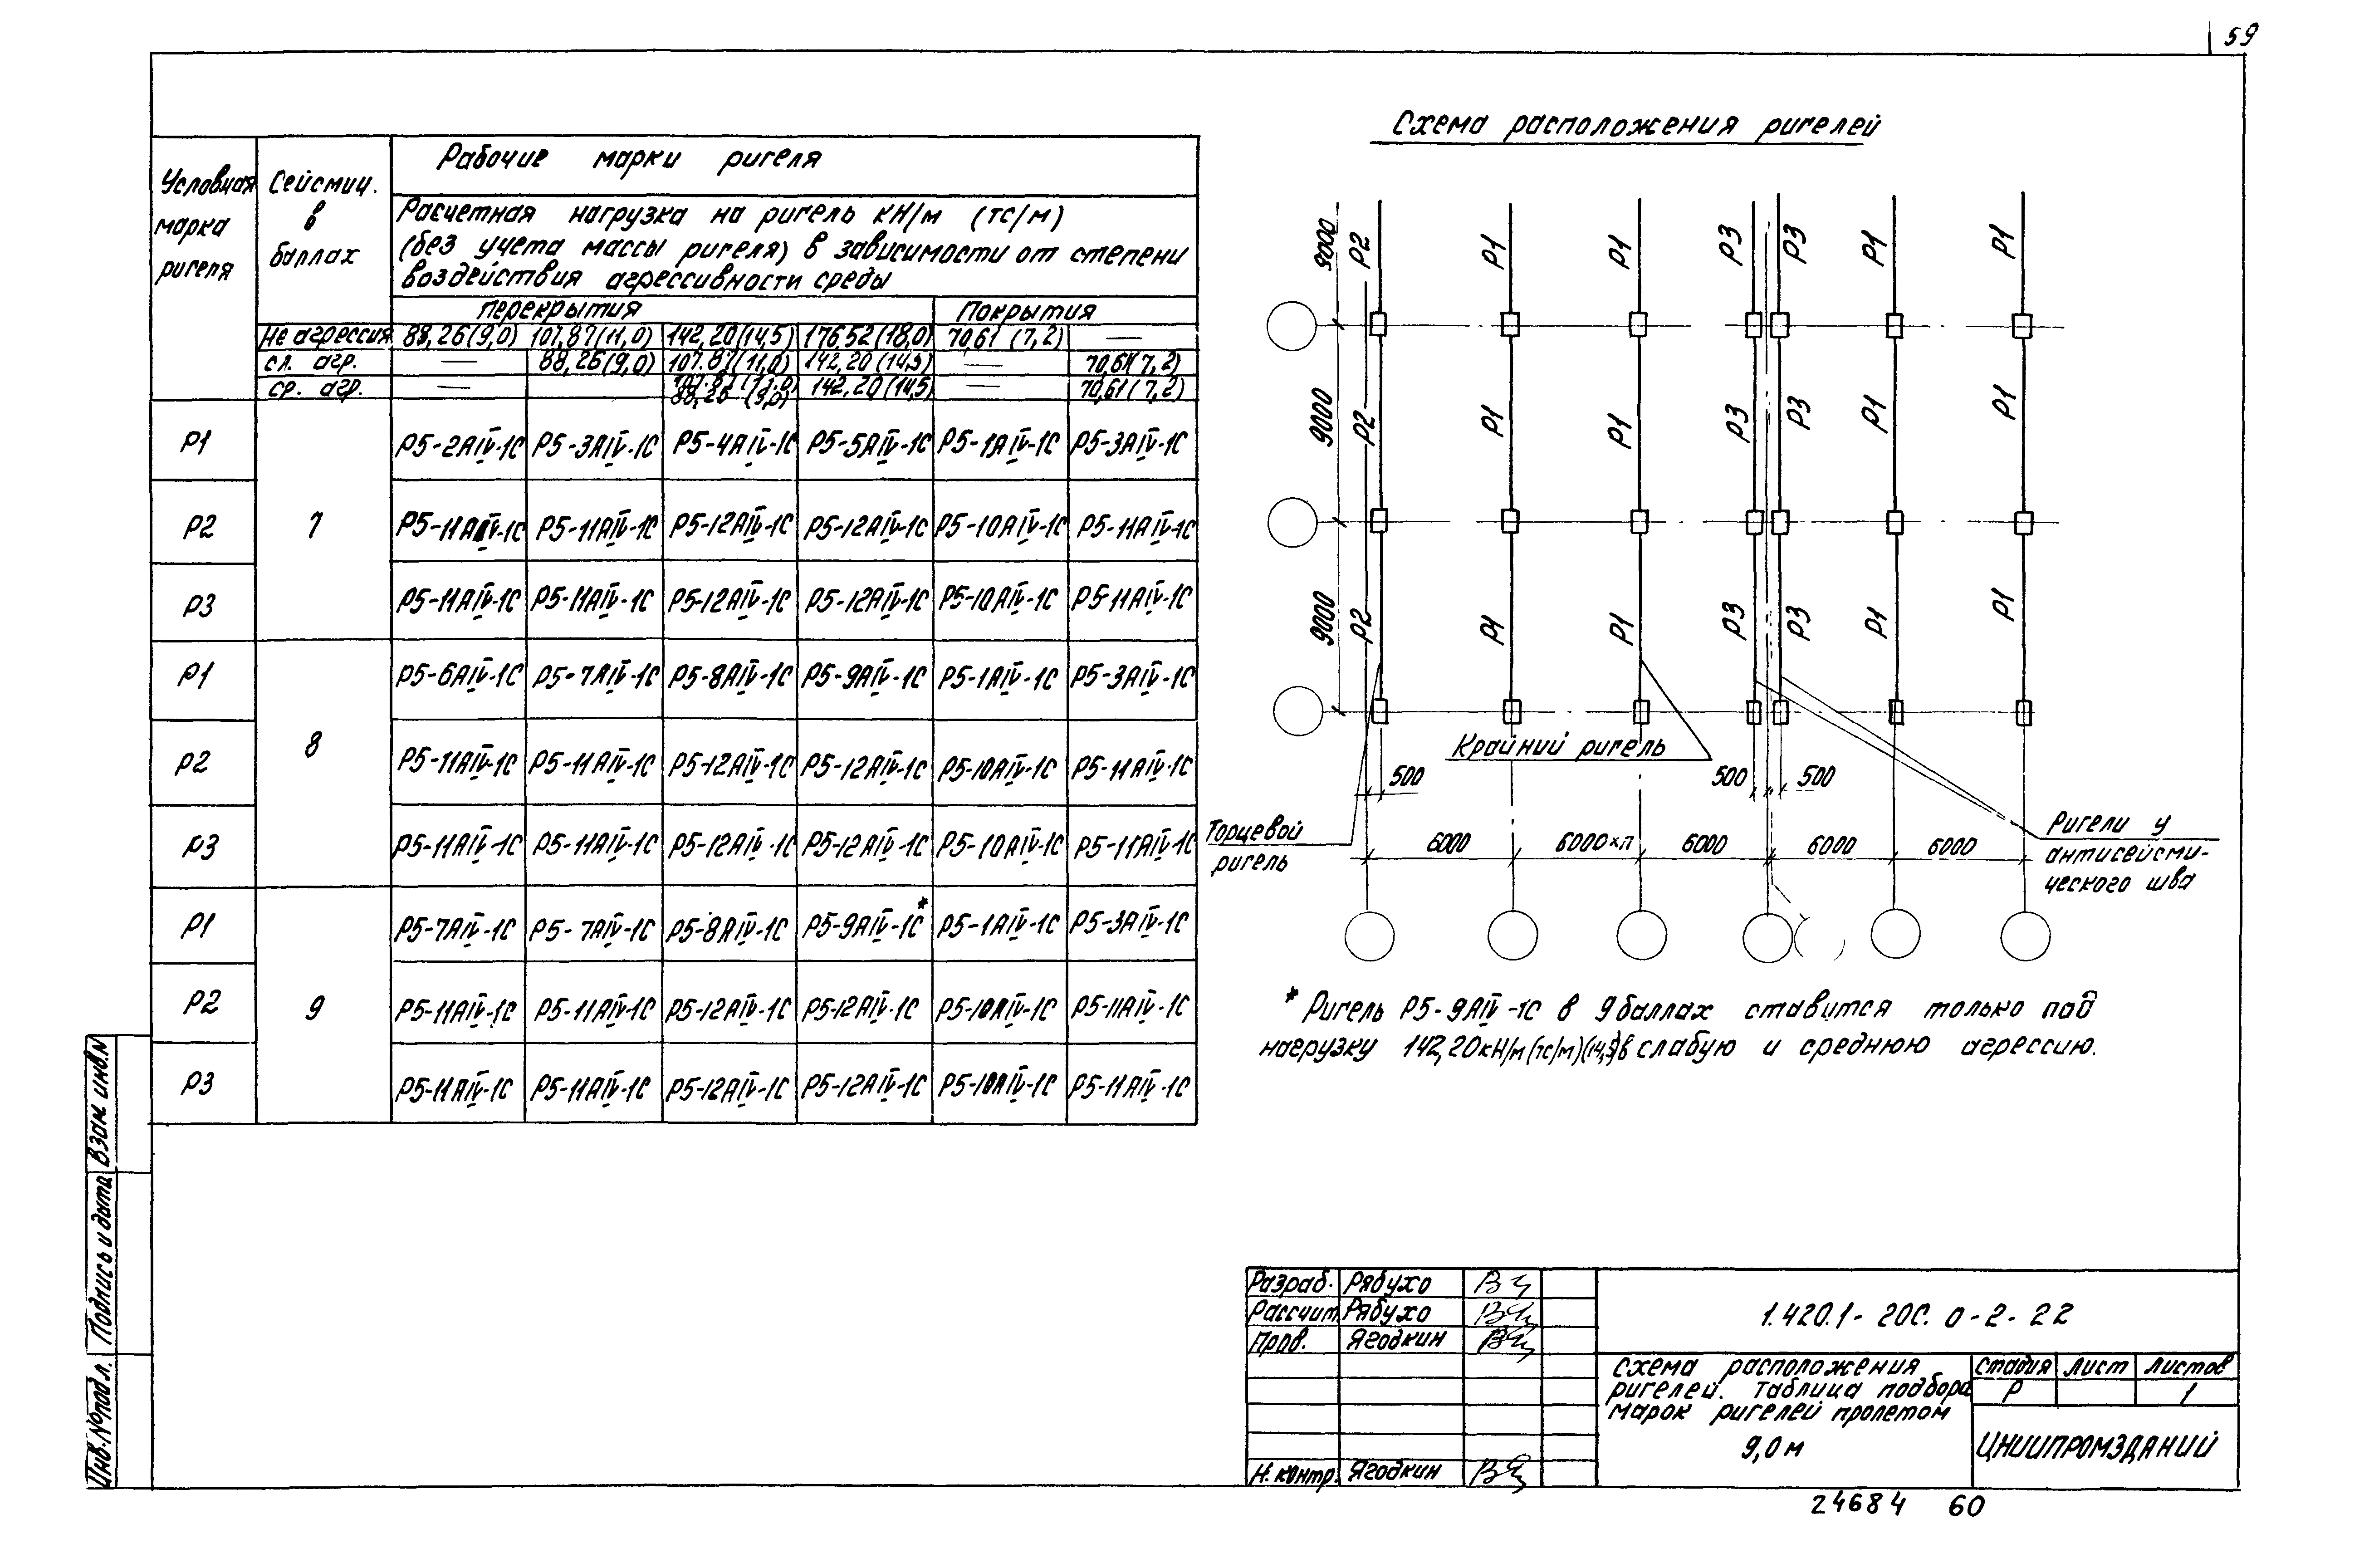 59
Схема расположения ригелей
Условная марка ригеля
Сейсмич. в баллах
Рабочие марки ригеля
Расчетная нагрузка на ригель кН/м (тс/м)
(без учета массы ригеля) в зависимости от степени
воздействия агрессивности среды
перекрытия покрытия
не агрессия 88,26(9,0) 107,87(11,0) 142,20(14,5) 176,52(18,0) 70,61 (7,2) —
сл. агр. — 88,26(9,0) 107.87(11,0) 142,20(14,5) — 70,61(7,2)
ср. агр. — 107.87(11.0) 142,20(14,5) — 70,61(7,2)
88,26 (9,0)
Р1 Р5-2АIV-1С Р5-3АIV-1С Р5-4АIV-1С Р5-5АIV-1С Р5-1АIV-1С Р5-3АIV-1С
Р2 7 Р5-11АIV-1С Р5-11АIV-1С Р5-12АIV-1С Р5-12АIV-1С Р5-10АIV-1С Р5-11АIV-1С
Р3 Р5-11АIV-1С Р5-11АIV-1С Р5-12АIV-1С Р5-12АIV-1С Р5-10АIV-1С Р5-11АIV-1С
Р1 Р5-6АIV-1С Р5-7АIV-1С Р5-8АIV-1С Р5-9АIV-1С Р5-1АIV-1С Р5-3АIV-1С
Р2 8 Р5-11АIV-1С Р5-11АIV-1С Р5-12АIV-1С Р5-12АIV-1С Р5-10АIV-1С Р5-11АIV-1С
Р3 Р5-11АIV-1С Р5-11АIV-1С Р5-12АIV-1С Р5-12АIV-1С Р5-10АIV-1С Р5-11АIV-1С
Р1 Р5-7АIV-1С Р5-7АIV-1С Р5-8АIV-1С Р5-9АIV-1С* Р5-1АIV-1С Р5-3АIV-1С
Р2 9 Р5-11АIV-1С Р5-11АIV-1С Р5-12АIV-1С Р5-12АIV-1С Р5-10АIV-1С Р5-11АIV-1С
Р3 Р5-11АIV-1С Р5-11АIV-1С Р5-12АIV-1С Р5-12АIV-1С Р5-10АIV-1С Р5-11АIV-1С
9000 Р2 Р1 Р1 Р3 Р3 Р1 Р1
9000 Р2 Р1 Р1 Р3 Р3 Р1 Р1
9000 Р2 Р1 Р1 Р3 Р3 Р1 Р1
Крайний ригель
500 500 500
Торцевой
ригель
6000 6000хп 6000 6000 6000
Ригели у
антисейсми-
ческого шва
* Ригель Р5-9АIV-1С в 9 баллах ставится только под
нагрузку 142,20кН/м(тс/м)(14,5)в слабую и среднюю агрессию.
Взам инв.N
Подпись и дата
Инв.№подл.
Разраб. Рябухо
Рассчит. Рябухо
Пров. Ягодкин
Н.контр. Ягодкин
1.420.1-20С. 0-2-22
Схема расположения
ригелей. Таблица подбора
марок ригелей пролетом
9,0м
Стадия Лист Листов
Р 1
ЦНИИПРОМЗДАНИЙ
24684 60